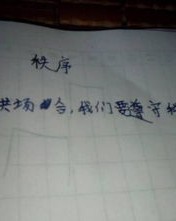 秩序
共场合,我们要遵守秩